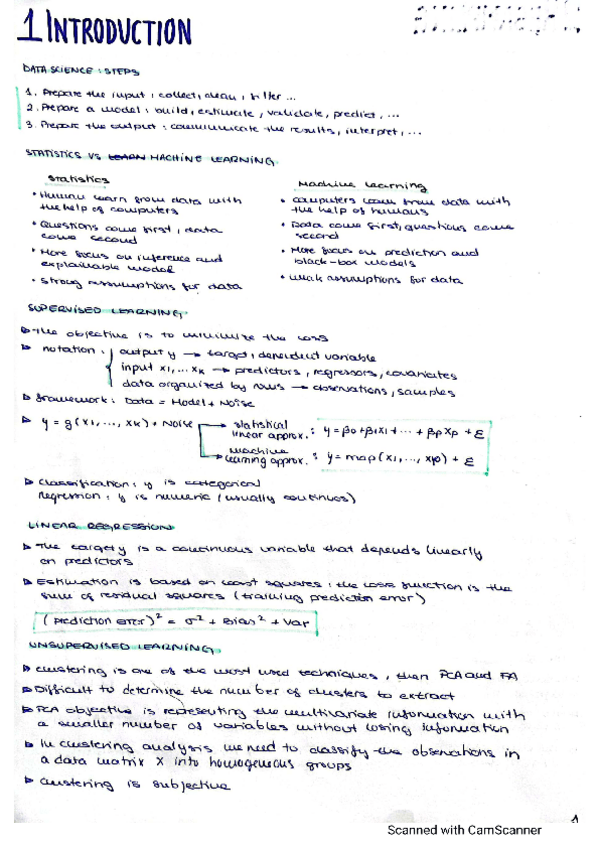 1 INTRODUCTION
DATA SCIENCE: STEPS
1. Prepare the input: collect, clean, filter ...
2. Prepare a model: build, estimate, validate, predict, ...
3. Prepare the output: communicate the results, interpret, ...
STATISTICS VS LEARN MACHINE LEARNING
Statistics
• Human learn from data with
the help of computers
• Questions come first, data
come second
• More focus on inference and
explainable model
• Strong assumptions for data
Machine Learning
• computers learn from data with
the help of humans
• Data come first, questions come
second
• More focus on prediction and
black-box models
• weak assumptions for data
SUPERVISED LEARNING
▷ The objective is to minimize the loss
▷ notation: output y → target, dependent variable
input x1, ... xk → predictors, regressors, covariates
data organized by rows → observations, samples
▷ framework: Data = Model + Noise
▷ y = g(x1, ..., xk) + Noise → statistical linear approx.: y = β0+β1x1+ ... + βpxp + ε
→ machine learning approx.: y = map(x1, ..., xp) + ε
▷ Classification: y is categorical
Regression: y is numeric (usually continuos)
LINEAR REGRESSION
▷ The target y is a continuous variable that depends linearly
on predictors
▷ Estimation is based on least squares: the loss function is the
sum of residual squares (training prediction error)
(prediction error)² = σ² + Bias² + Var
UNSUPERVISED LEARNING
▷ clustering is one of the most used techniques, then PCA and FA
▷ Difficult to determine the number of clusters to extract
▷ PCA objective is represeting the multivariate information with
a smaller number of variables without losing information
▷ In clustering analysis we need to classify the observations in
a data matrix X into homogeneous groups
▷ clustering is subjective
1
Scanned with CamScanner